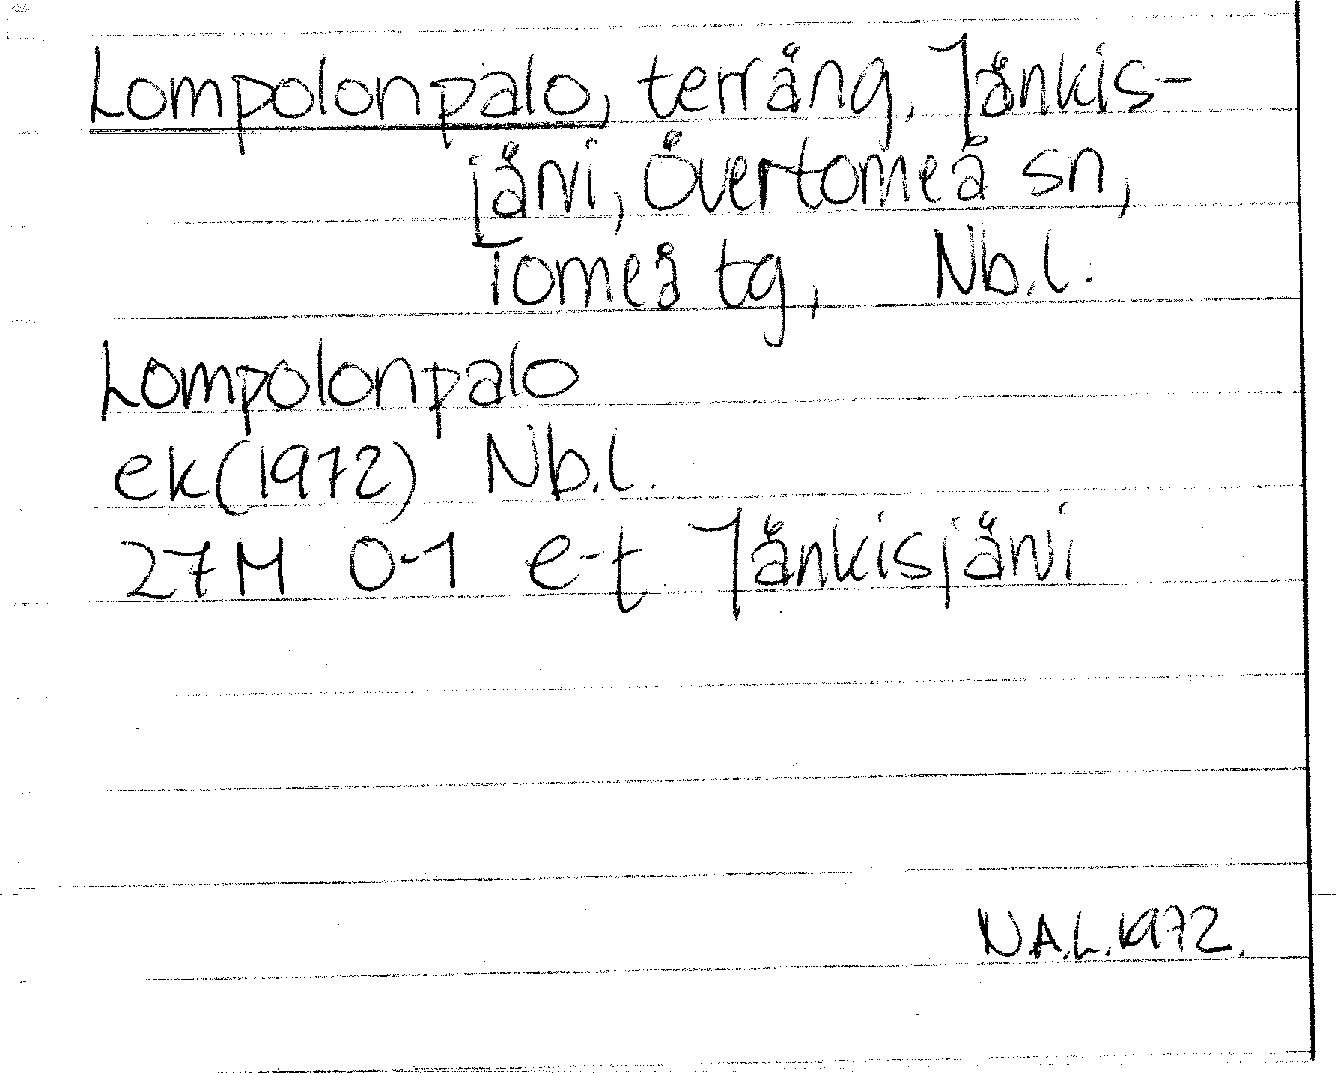 Lompolonpalo, terräng, Jänkis-
järvi, Övertorneå sn,
Torneå tg, Nb.l.
Lompolonpalo
ek(1972) Nb.l.
27M 0-1 e-f Jänkisjärvi
N.A.L. 1972.